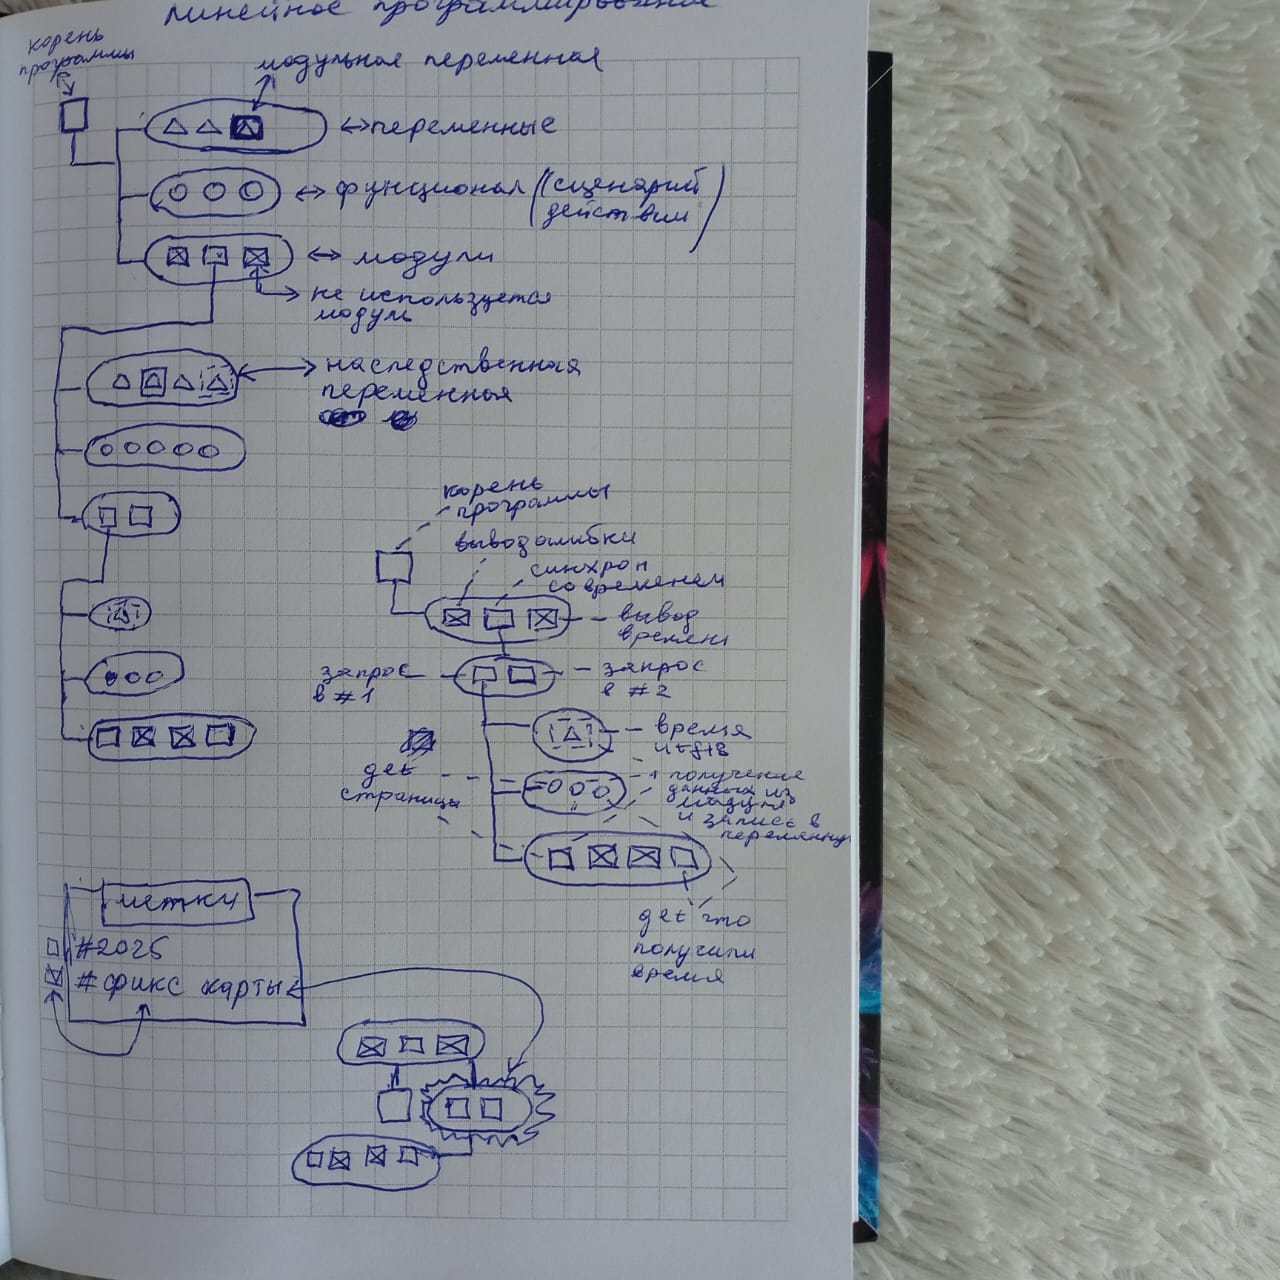 линейное программирование
корень
программы
модульная переменная
переменные
функционал (сценарий
действий)
модули
не используется
модуль
наследственная
переменная
корень
программы
вывод ошибки
синхрон
со временем
вывод
времени
запрос
в #1
запрос
в #2
время
get
страницы
получение
данных из
модуля
и запись в
переменну
get что
получили
время
метки
#2025
#фикс карты